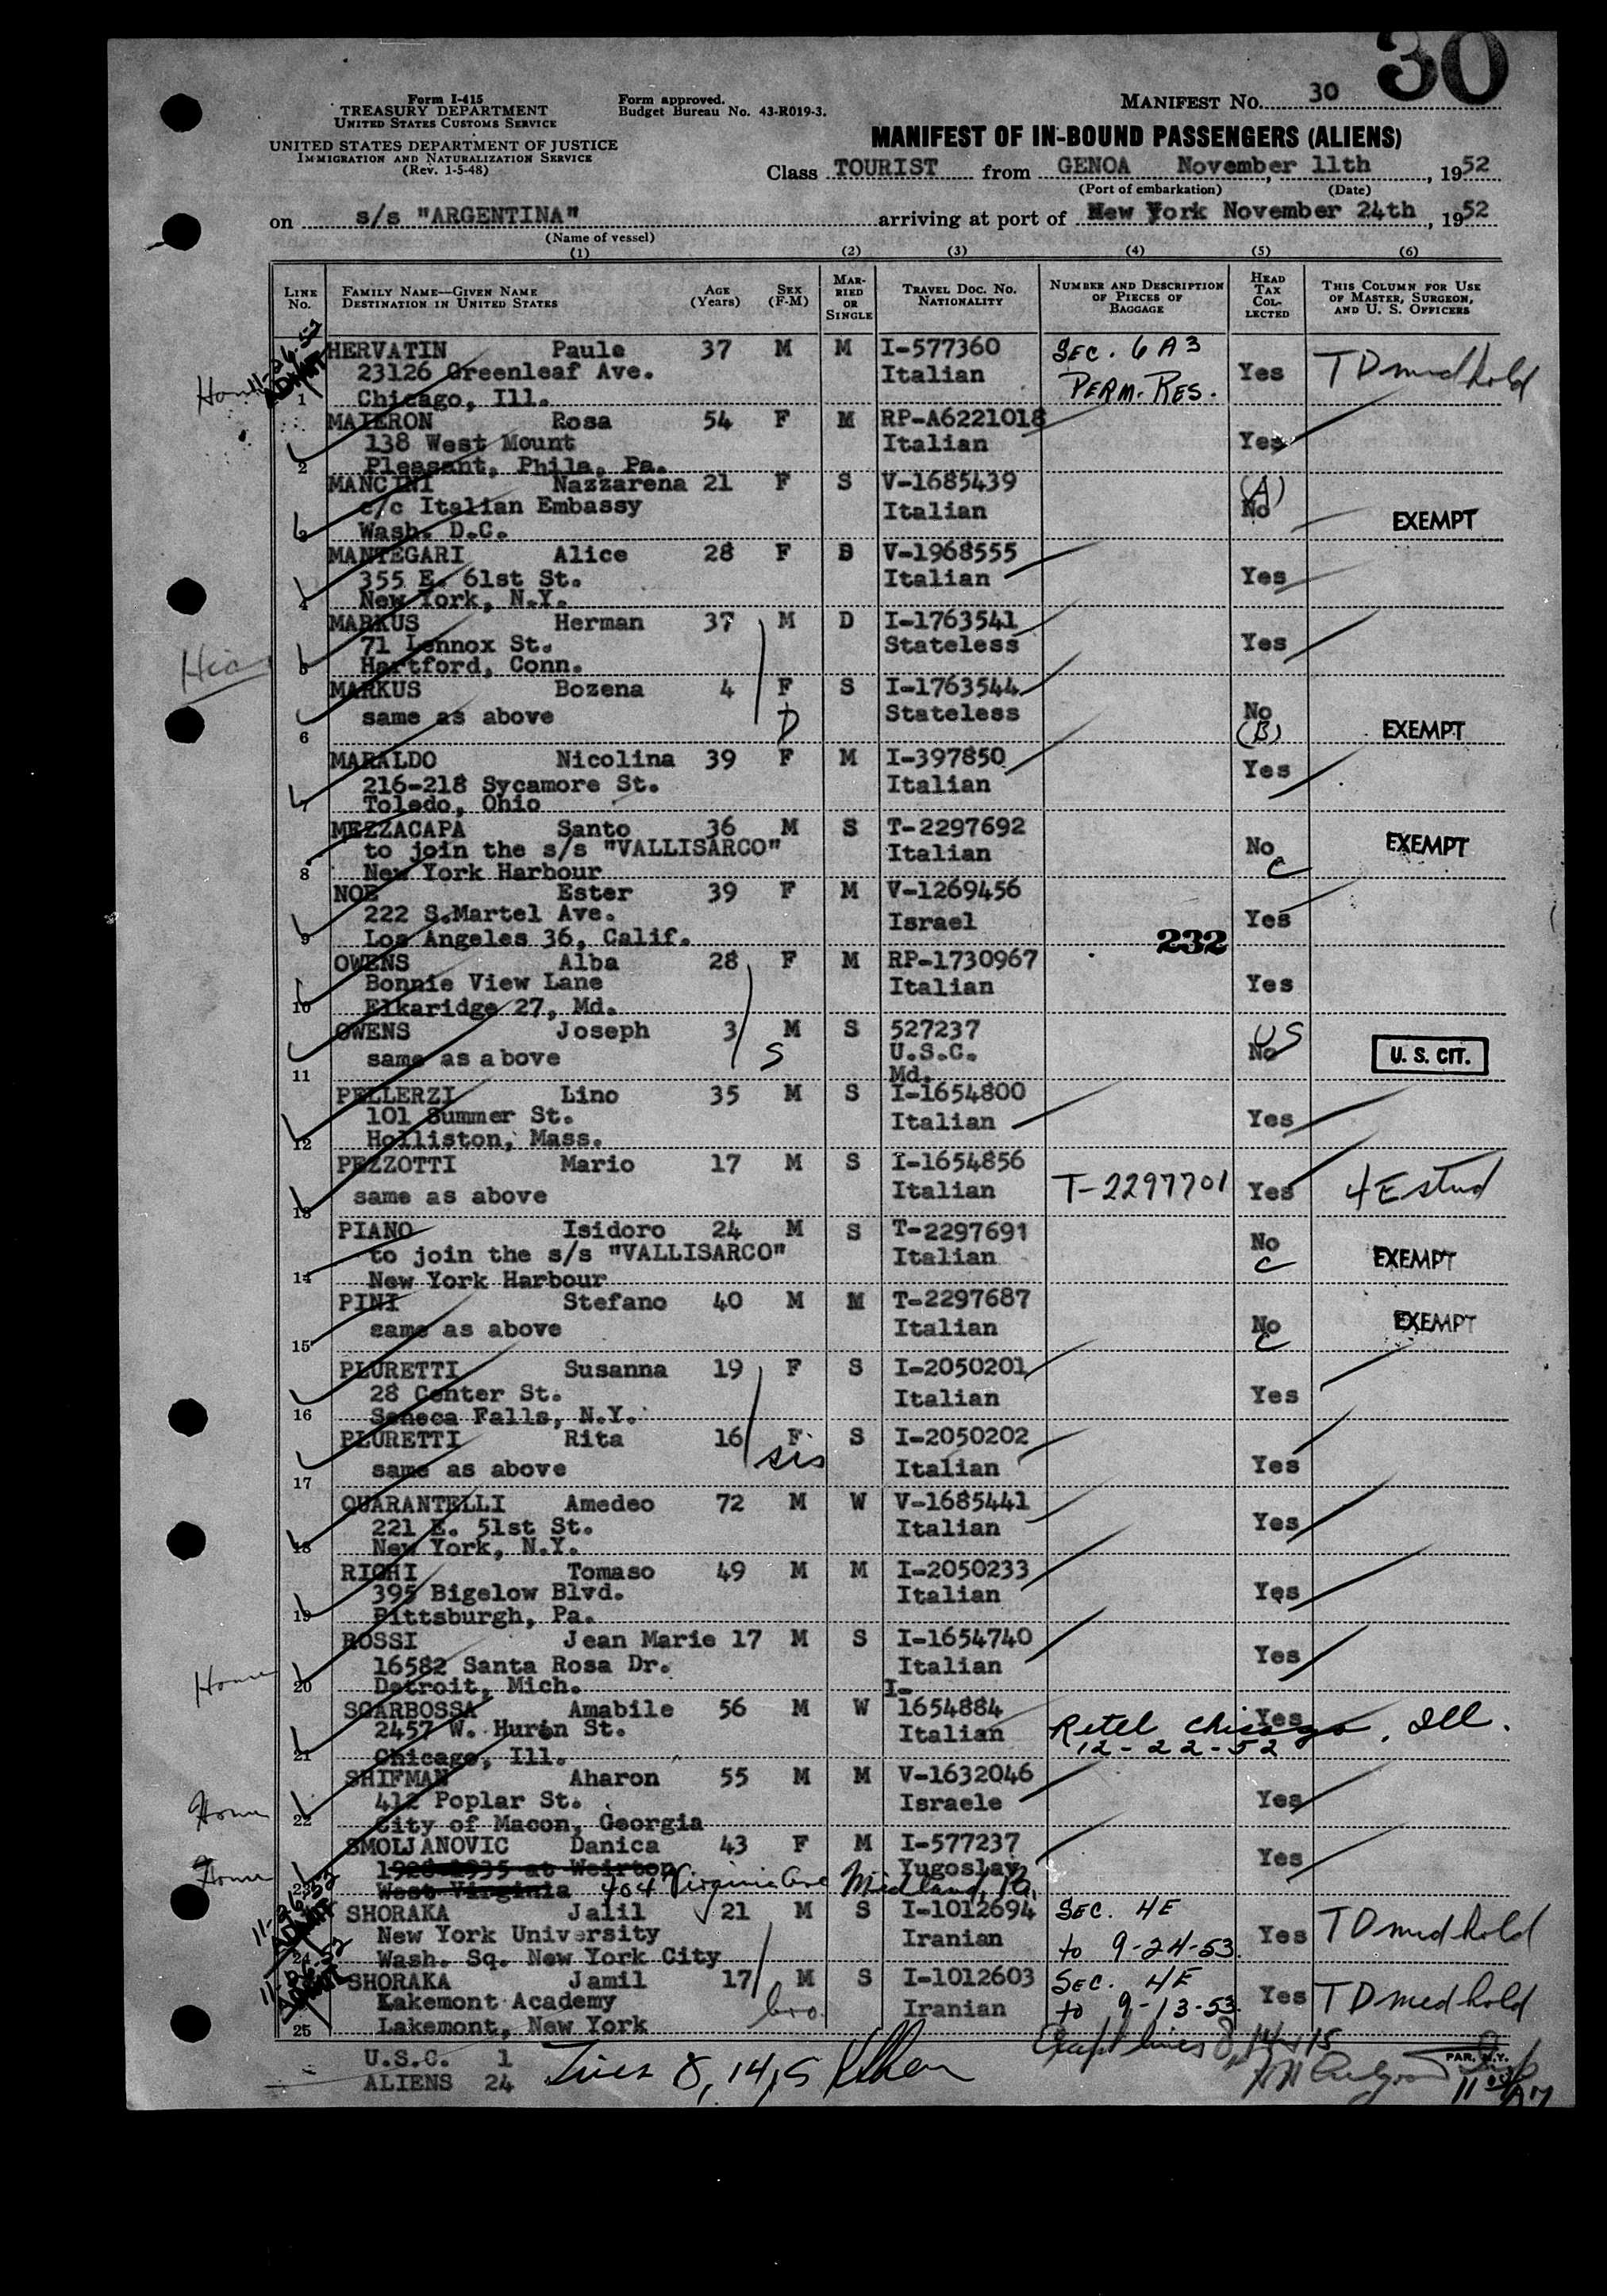 30
Form I-415
TREASURY DEPARTMENT
UNITED STATES CUSTOMS SERVICE
UNITED STATES DEPARTMENT OF JUSTICE
IMMIGRATION AND NATURALIZATION SERVICE
(Rev. 1-5-48)
Form approved.
Budget Bureau No. 43-R019-3.
MANIFEST NO. 30
MANIFEST OF IN-BOUND PASSENGERS (ALIENS)
Class TOURIST from GENOA November 11th, 1952
(Port of embarkation) (Date)
on s/s "ARGENTINA" arriving at port of New York November 24th, 1952
(Name of vessel)
(1) (2) (3) (4) (5) (6)
LINE NO. FAMILY NAME—GIVEN NAME DESTINATION IN UNITED STATES AGE (Years) SEX (F-M) MARRIED OR SINGLE TRAVEL DOC. NO. NATIONALITY NUMBER AND DESCRIPTION OF PIECES OF BAGGAGE HEAD TAX COLLECTED THIS COLUMN FOR USE OF MASTER, SURGEON, AND U. S. OFFICERS
HERVATIN Paule 37 M M I-577360 SEC. 6 A 3
23126 Greenleaf Ave. Italian Yes TD med hold
1 Chicago, Ill. PERM. RES.
MAIERON Rosa 54 F M RP-A6221018
138 West Mount Italian Yes
2 Pleasant, Phila, Pa.
MANCINI Nazzarena 21 F S V-1685439 (A)
c/c Italian Embassy Italian No EXEMPT
3 Wash. D.C.
MANTEGARI Alice 28 F D V-1968555
355 E. 61st St. Italian Yes
4 New York, N.Y.
MARKUS Herman 37 M D I-1763541
71 Lennox St. Stateless Yes
5 Hartford, Conn.
MARKUS Bozena 4 F S I-1763544
same as above D Stateless No
6 (B) EXEMPT
MARALDO Nicolina 39 F M I-397850
216-218 Sycamore St. Italian Yes
7 Toledo, Ohio
MEZZACAPA Santo 36 M S T-2297692
to join the s/s "VALLISARCO" Italian No EXEMPT
8 New York Harbour C
NOE Ester 39 F M V-1269456
222 S.Martel Ave. Israel Yes
9 Los Angeles 36, Calif. 232
OWENS Alba 28 F M RP-1730967
Bonnie View Lane Italian Yes
10 Elkaridge 27, Md.
OWENS Joseph 3 M S 527237 US
same as above S U.S.C. No U. S. CIT.
11 Md.
PELLERZI Lino 35 M S I-1654800
101 Summer St. Italian Yes
12 Holliston, Mass.
PEZZOTTI Mario 17 M S I-1654856
13 same as above Italian T-2297701 Yes 4 E stud
PIANO Isidoro 24 M S T-2297691
to join the s/s "VALLISARCO" Italian No EXEMPT
14 New York Harbour C
PINI Stefano 40 M M T-2297687
15 same as above Italian No C EXEMPT
PLURETTI Susanna 19 F S I-2050201
28 Center St. Italian Yes
16 Seneca Falls, N.Y.
PLURETTI Rita 16 F S I-2050202
same as above sis Italian Yes
17
QUARANTELLI Amedeo 72 M W V-1685441
221 E. 51st St. Italian Yes
18 New York, N.Y.
RIGHI Tomaso 49 M M I-2050233
395 Bigelow Blvd. Italian Yes
19 Pittsburgh, Pa.
ROSSI Jean Marie 17 M S I-1654740
16582 Santa Rosa Dr. Italian Yes
20 Detroit, Mich. I-
SGARBOSSA Amabile 56 M W 1654884 Yes
2457 W. Huron St. Italian Retel Chicago, Ill.
21 Chicago, Ill. 12-22-52
SHIFMAN Aharon 55 M M V-1632046
412 Poplar St. Israele Yes
22 City of Macon, Georgia
SMOLJANOVIC Danica 43 F M I-577237
1928-1935 at Weirton Yugoslav Yes
23 West Virginia 404 Virginia Ave Midland, Pa.
SHORAKA Jalil 21 M S I-1012694 SEC. 4E
New York University Iranian Yes TD med hold
24 Wash. Sq. New York City to 9-24-53.
SHORAKA Jamil 17 M S I-1012603 SEC. 4E
Lakemont Academy bro. Iranian to 9-13-53. Yes TD med hold
25 Lakemont, New York
U.S.C. 1
ALIENS 24
Lines 8, 14, 15
Except lines 8, 14, 15
PAR. N.Y.
Home
Home
Home
Home